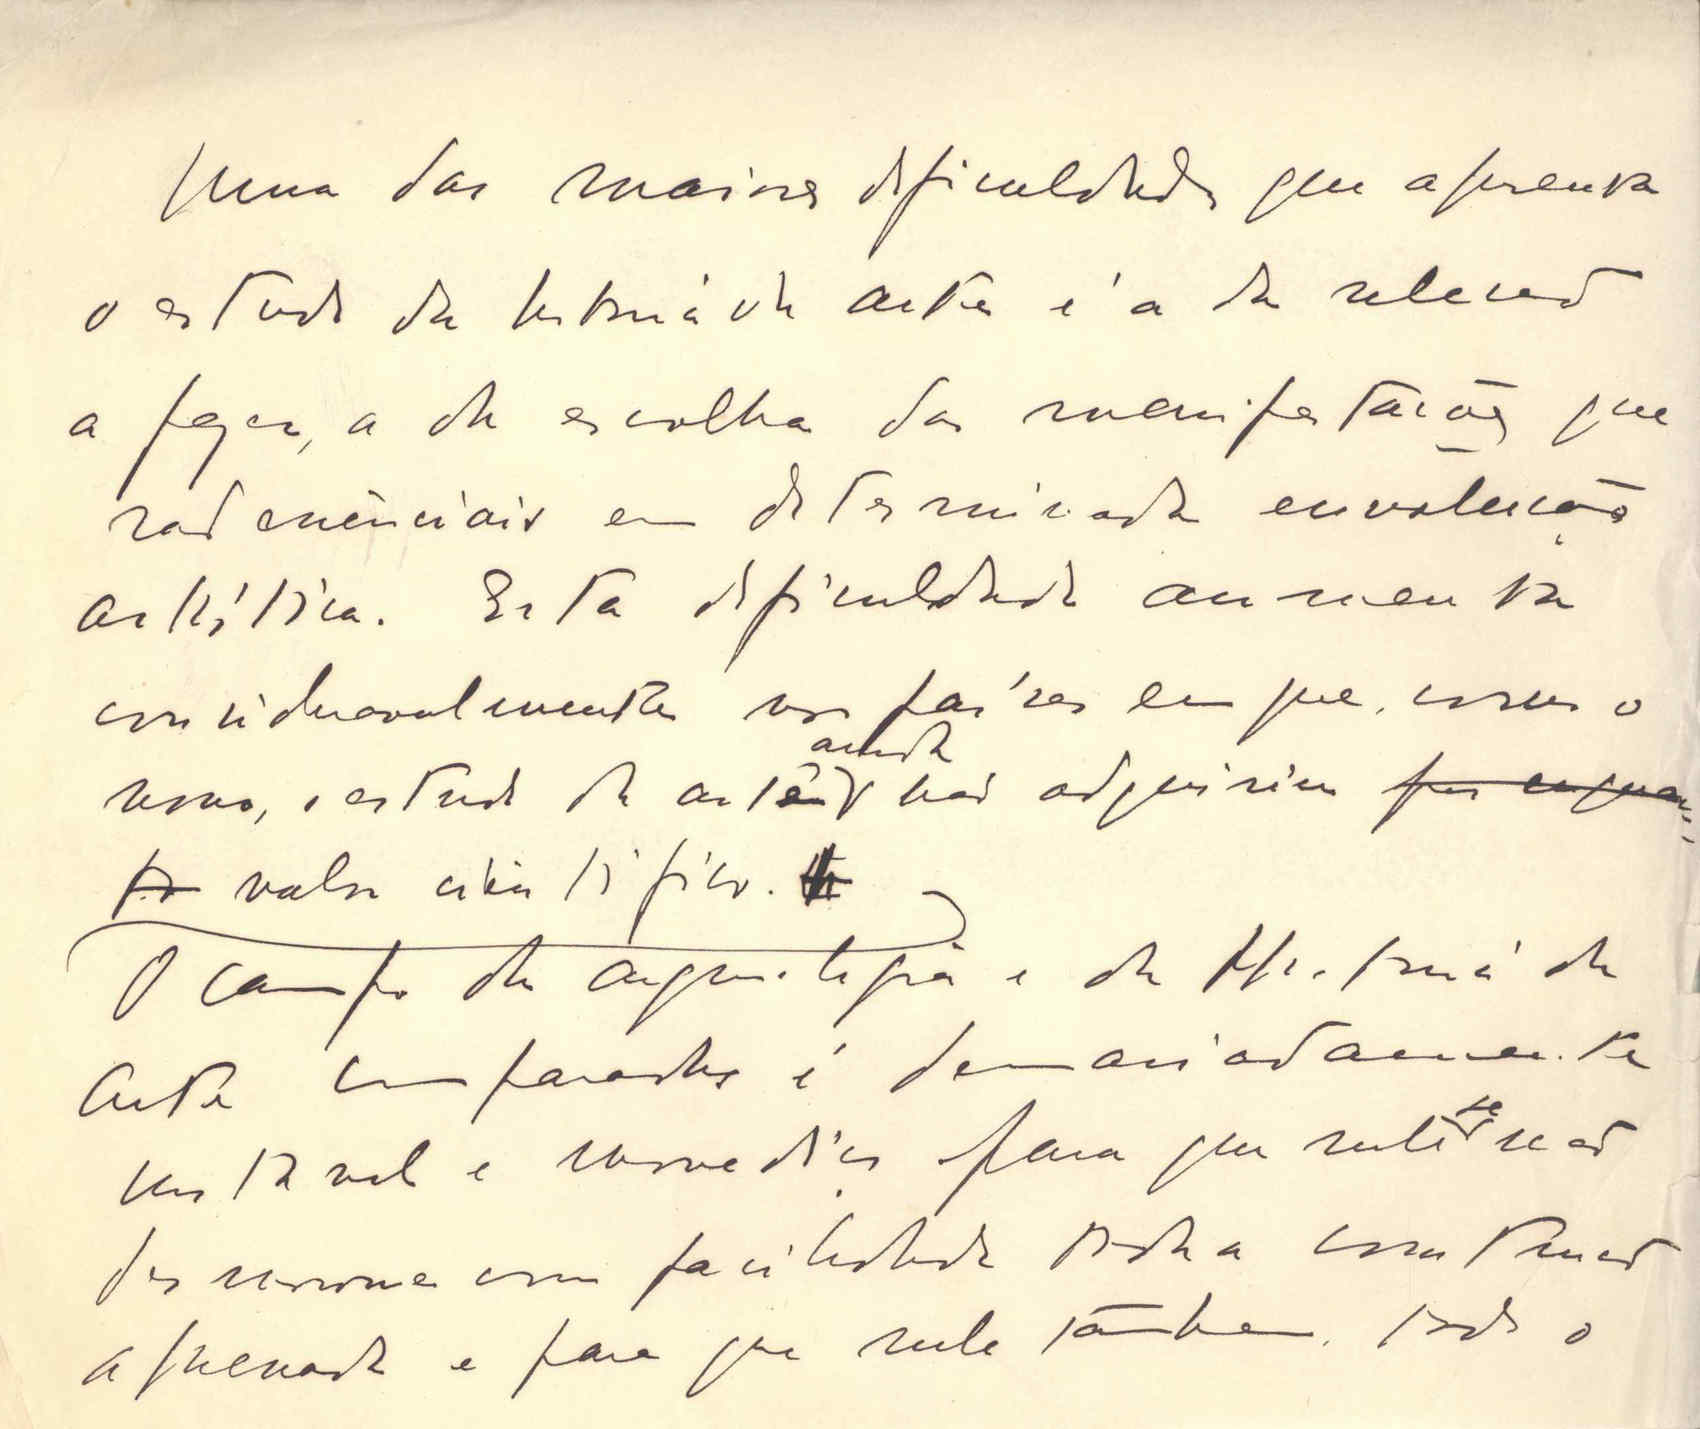 Uma das maiores dificuldades que apresenta
o estudo da história da arte é a da selecção
a fazer, a da escolha das manifestações que
são essenciais em determinada envolução
artística. Esta dificuldade aumenta
consideravelmente nos países em que, como o
nosso, o estudo da arte ainda não adquiriu por enquan-
to valor científico.
O campo da arqueologia e da História da
Arte comparadas é demasiadamente
instavel e movediço para que nele se não
desmorone com facilidade toda a construção
apressada e para que nele tâmbem, todo o